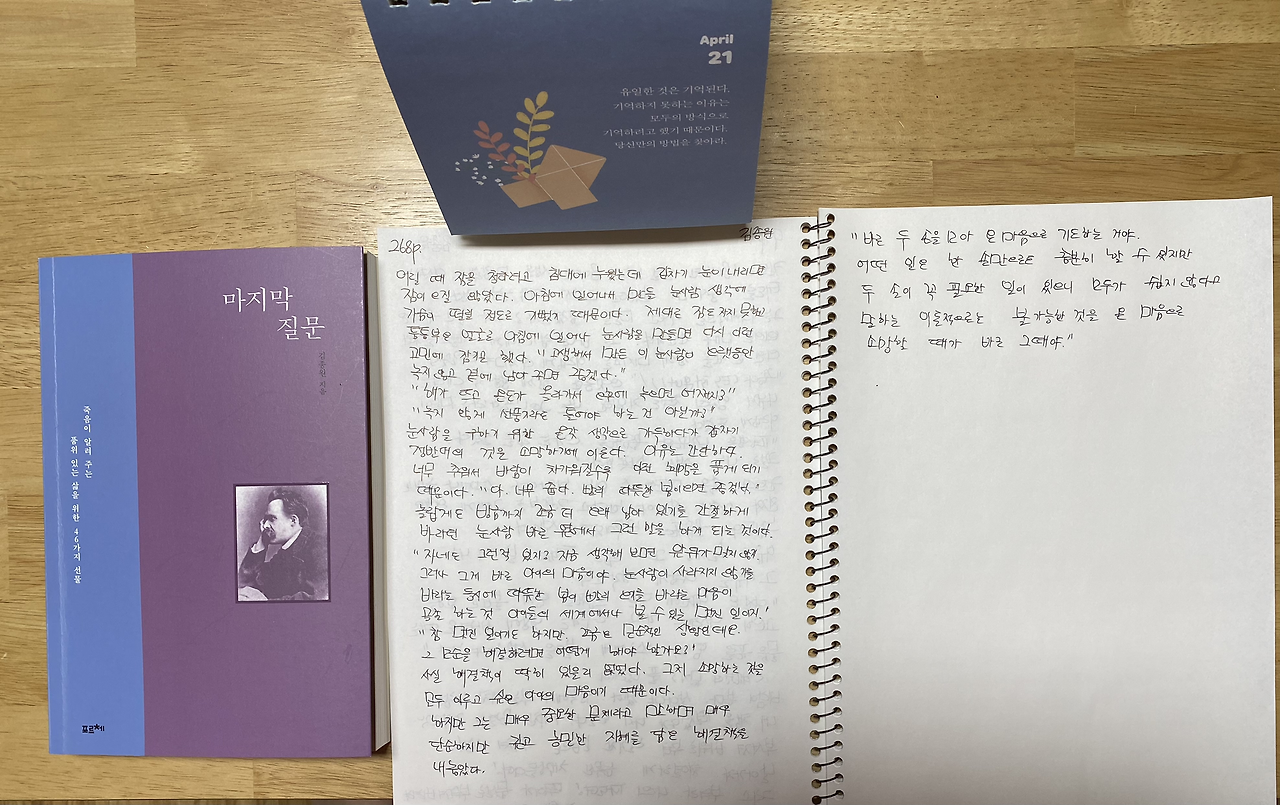 April
21
유일한 것은 기억된다.
기억하지 못하는 이유는
모두의 방식으로
기억하려고 했기 때문이다.
당신만의 방법을 찾아라.
마지막
질문
김종원 지음
죽음이 알려 주는
품위 있는 삶을 위한 46가지 선물
포르체
268p.
김종원
어릴 때 잠을 청하려고 침대에 누웠는데 갑자기 눈이 내리면
잠이 오질 않았다. 아침에 일어나 만들 눈사람 생각에
가슴이 떨릴 정도로 기뻤기 때문이다. 제대로 잠도 자지 못하고
퉁퉁부은 얼굴로 아침에 일어나 눈사람을 만들면 다시 이런
고민에 잠기곤 했다. "고생해서 만든 이 눈사람이 오랫동안
녹지 않고 곁에 남아 주면 좋겠다."
"해가 뜨고 온도가 올라가서 오후에 녹으면 어쩌지?"
"녹지 않게 선풍기라도 틀어야 하는 건 아닐까?"
눈사람을 구하기 위한 온갖 생각으로 가득하다가 갑자기
정반대의 것을 소망하기에 이른다. 이유는 간단하다.
너무 추워서 바람이 차가워질수록 이런 희망을 품게 되기
때문이다. "다. 너무 춥다. 빨리 따뜻한 봄이 오면 좋겠다."
놀랍게도 방금까지 조금 더 오래 남아 있기를 간절하게
바라던 눈사람 바로 앞에서 그런 말을 하게 되는 것이다.
"자네도 그런적 있지? 지금 생각해 보면 앞뒤가 맞지 않지.
그러나 그게 바로 아이의 마음이야. 눈사람이 사라지지 않기를
바라는 동시에 따뜻한 봄이 빨리 오기를 바라는 마음이
공존 하는 것 아이들의 세계에서나 볼 수 있는 멋진 일이지."
"참 멋진 일이기도 하지만, 조금은 모순적인 상황인데요.
그 모순을 해결하려면 어떻게 해야 할까요?"
사실 해결책이 딱히 있을리 없었다. 그저 소망하는 것을
모두 이루고 싶은 아이의 마음이기 때문이다.
하지만 그는 매우 중요한 문제라고 말하며 매우
단순하지만 깊고 농밀한 지혜를 담은 해결책을
내놓았다.
"바로 두 손을 모아 온 마음으로 기도하는 거야.
어떤 일은 한 손만으로도 충분히 할 수 있지만
두 손이 꼭 필요한 일이 있으니 모두가 쉽지 않다고
말하는 이론적으로는 불가능한 것을 온 마음으로
소망할 때가 바로 그때야."